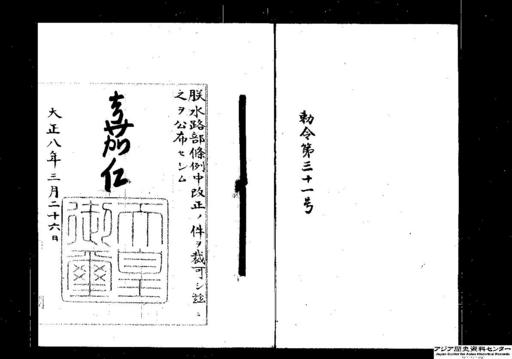 勅令第三十一号
朕水路部條例中改正ノ件ヲ裁可シ茲ニ
之ヲ公布セシム
嘉仁
天皇御璽
大正八年三月二十六日
アジア歴史資料センター
Japan Center for Asian Historical Records